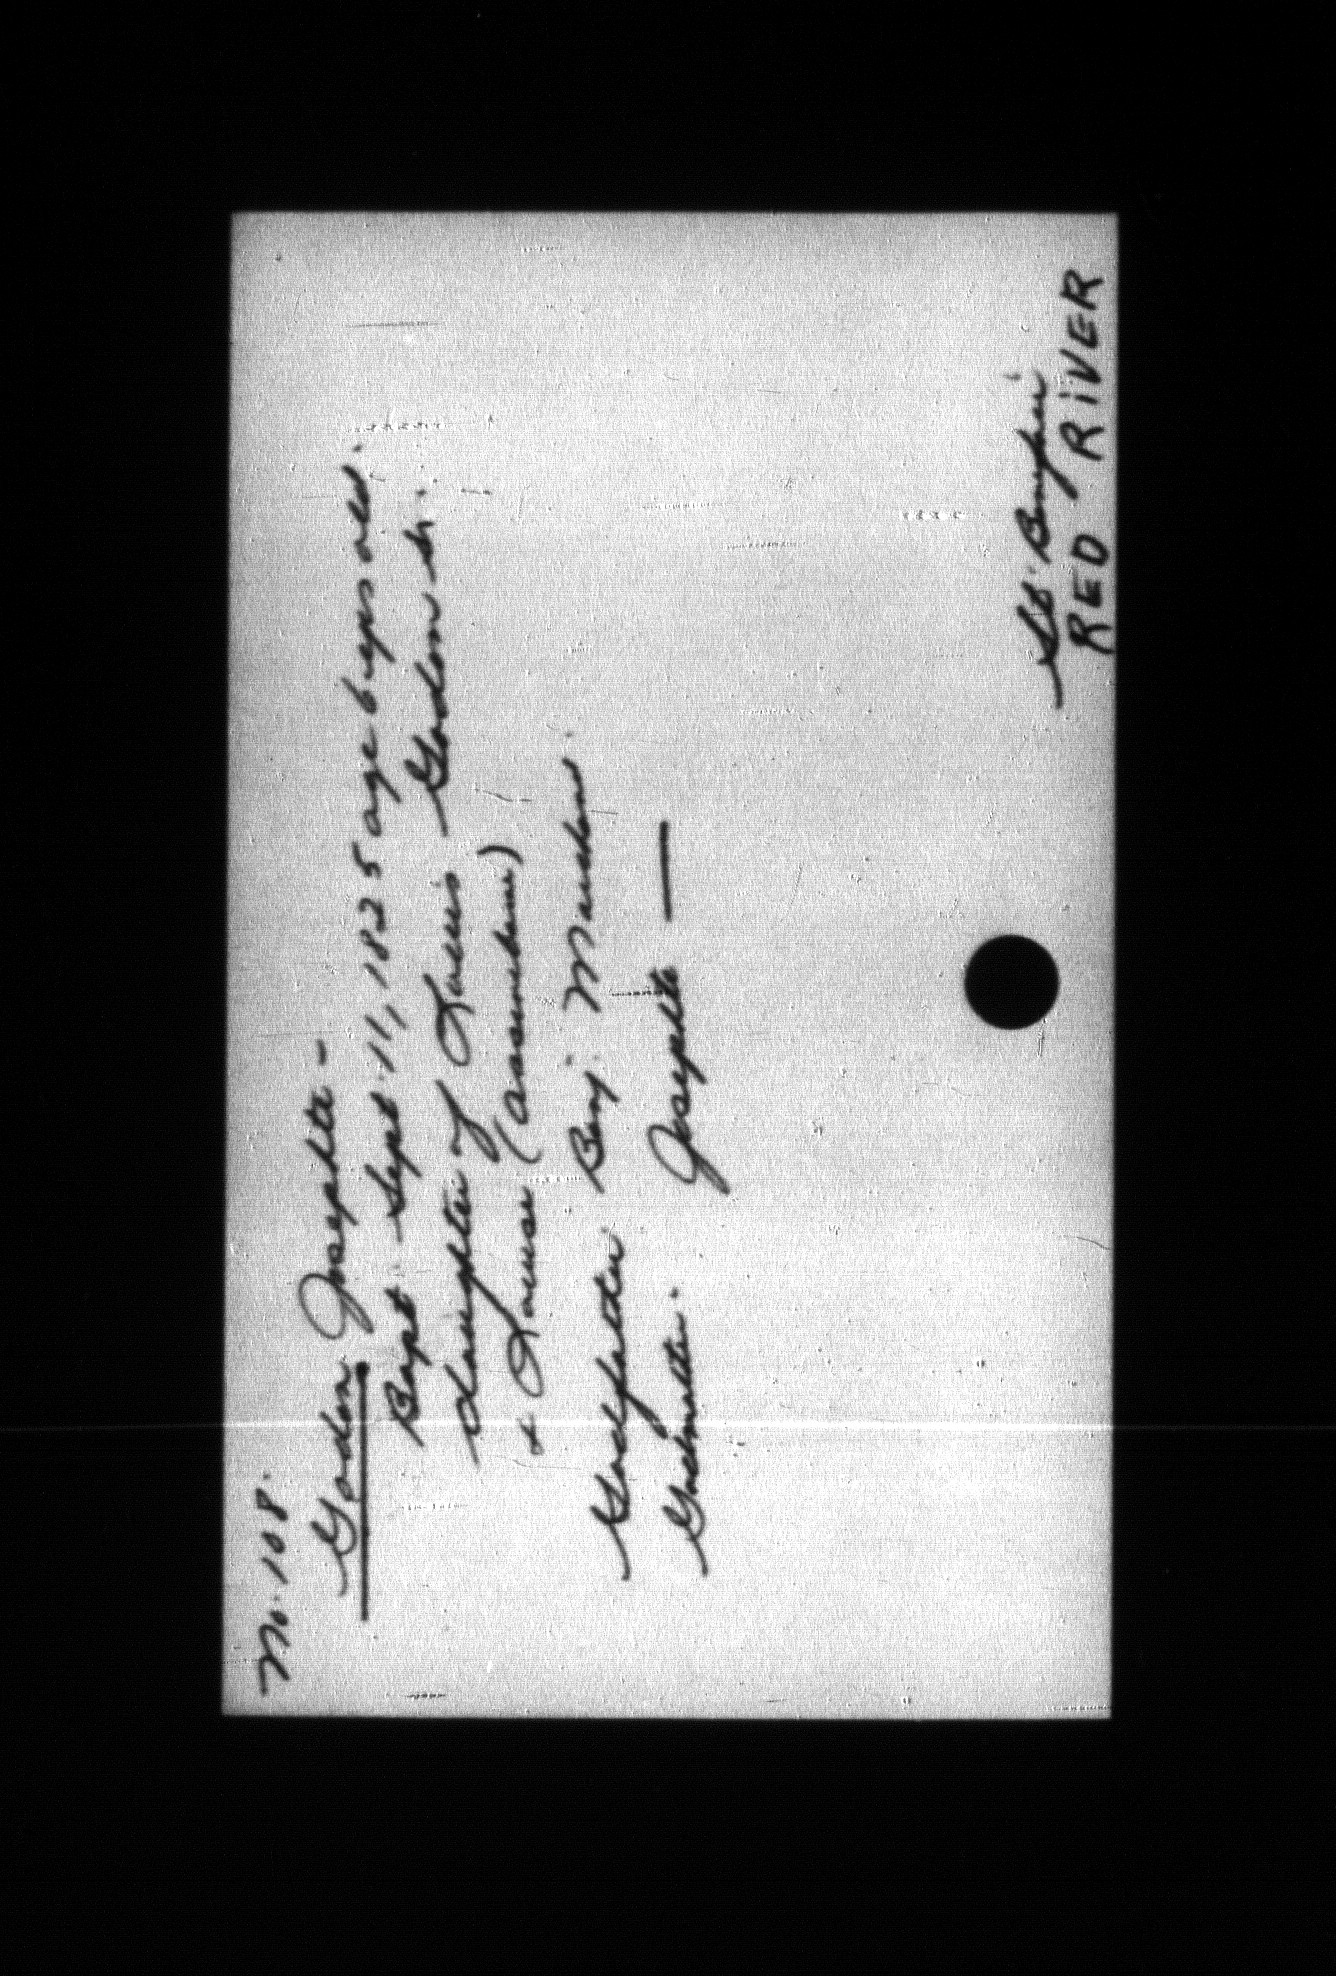 No. 108.
Godon, Josephte -
Bapt. Sept. 11, 1825 age 6 yrs old.
daughter of Louis Godon Sr.
& Louise (
Godfather. Benj.
Godmother. Josephte —
St. Boniface
RED RIVER